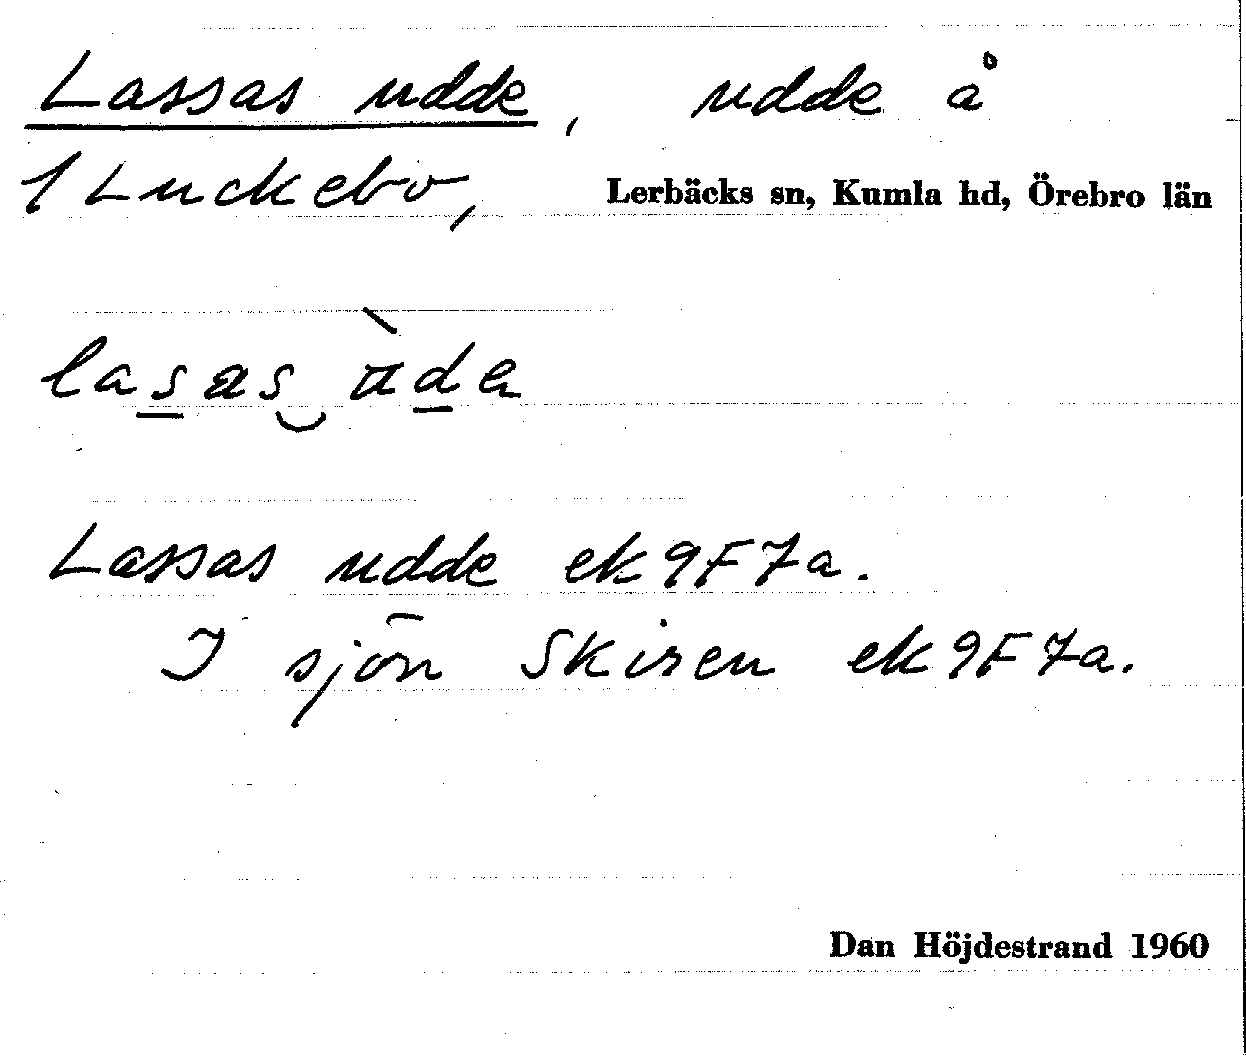 Lassas udde, udde å
1 Luckebo, Lerbäcks sn, Kumla hd, Örebro län
lasas àda
Lassas udde ek 9F7a.
I sjön Skiren ek 9F7a.
Dan Höjdestrand 1960